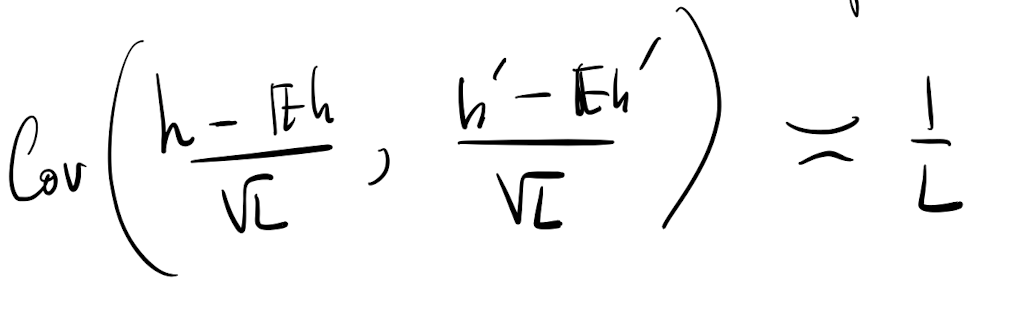 $\mathrm{Cov}\left(\frac{h - \mathbb{E}h}{\sqrt{L}}, \frac{h' - \mathbb{E}h'}{\sqrt{L}}\right) \asymp \frac{1}{L}$